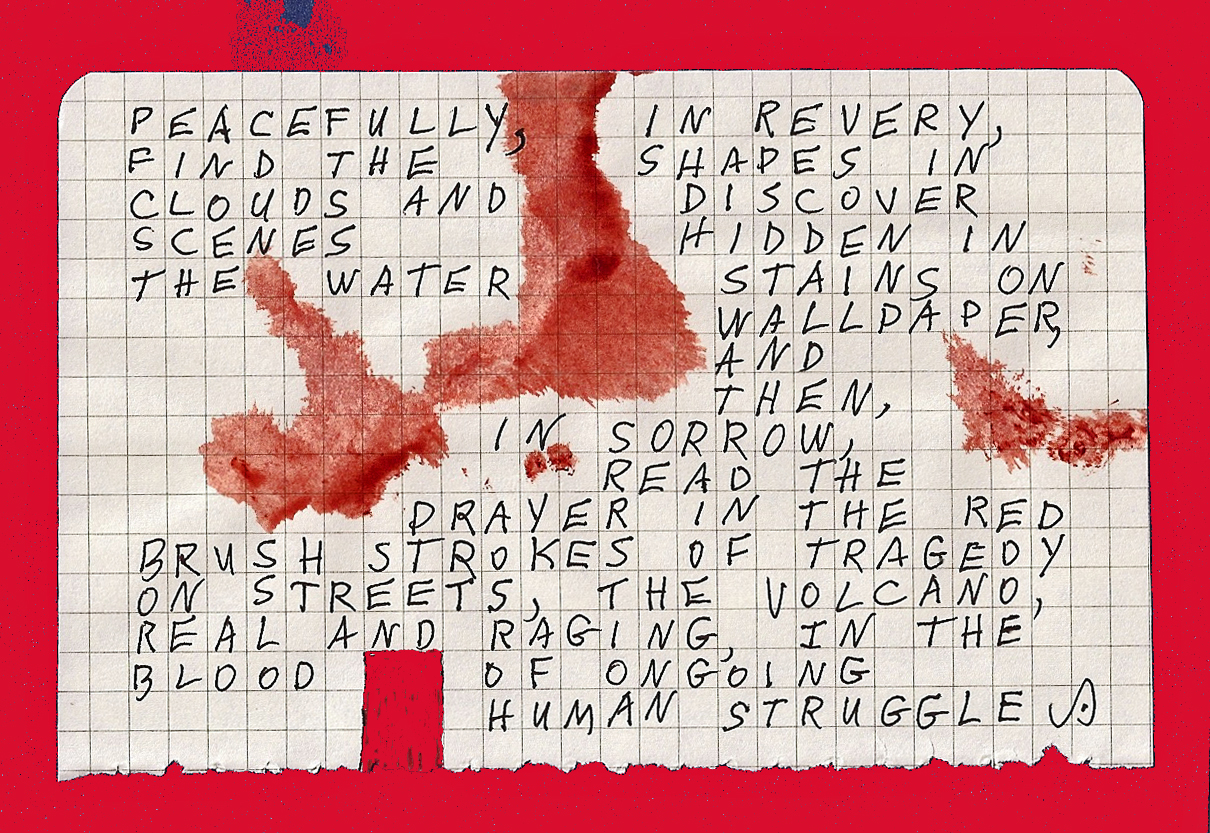 PEACEFULLY, IN REVERY,
FIND THE SHAPES IN
CLOUDS AND DISCOVER
SCENES HIDDEN IN
THE WATER STAINS ON
WALLPAPER,
AND
THEN,
IN SORROW,
READ THE
PRAYER IN THE RED
BRUSH STROKES OF TRAGEDY
ON STREETS, THE VOLCANO,
REAL AND RAGING, IN THE
BLOOD OF ONGOING
HUMAN STRUGGLE